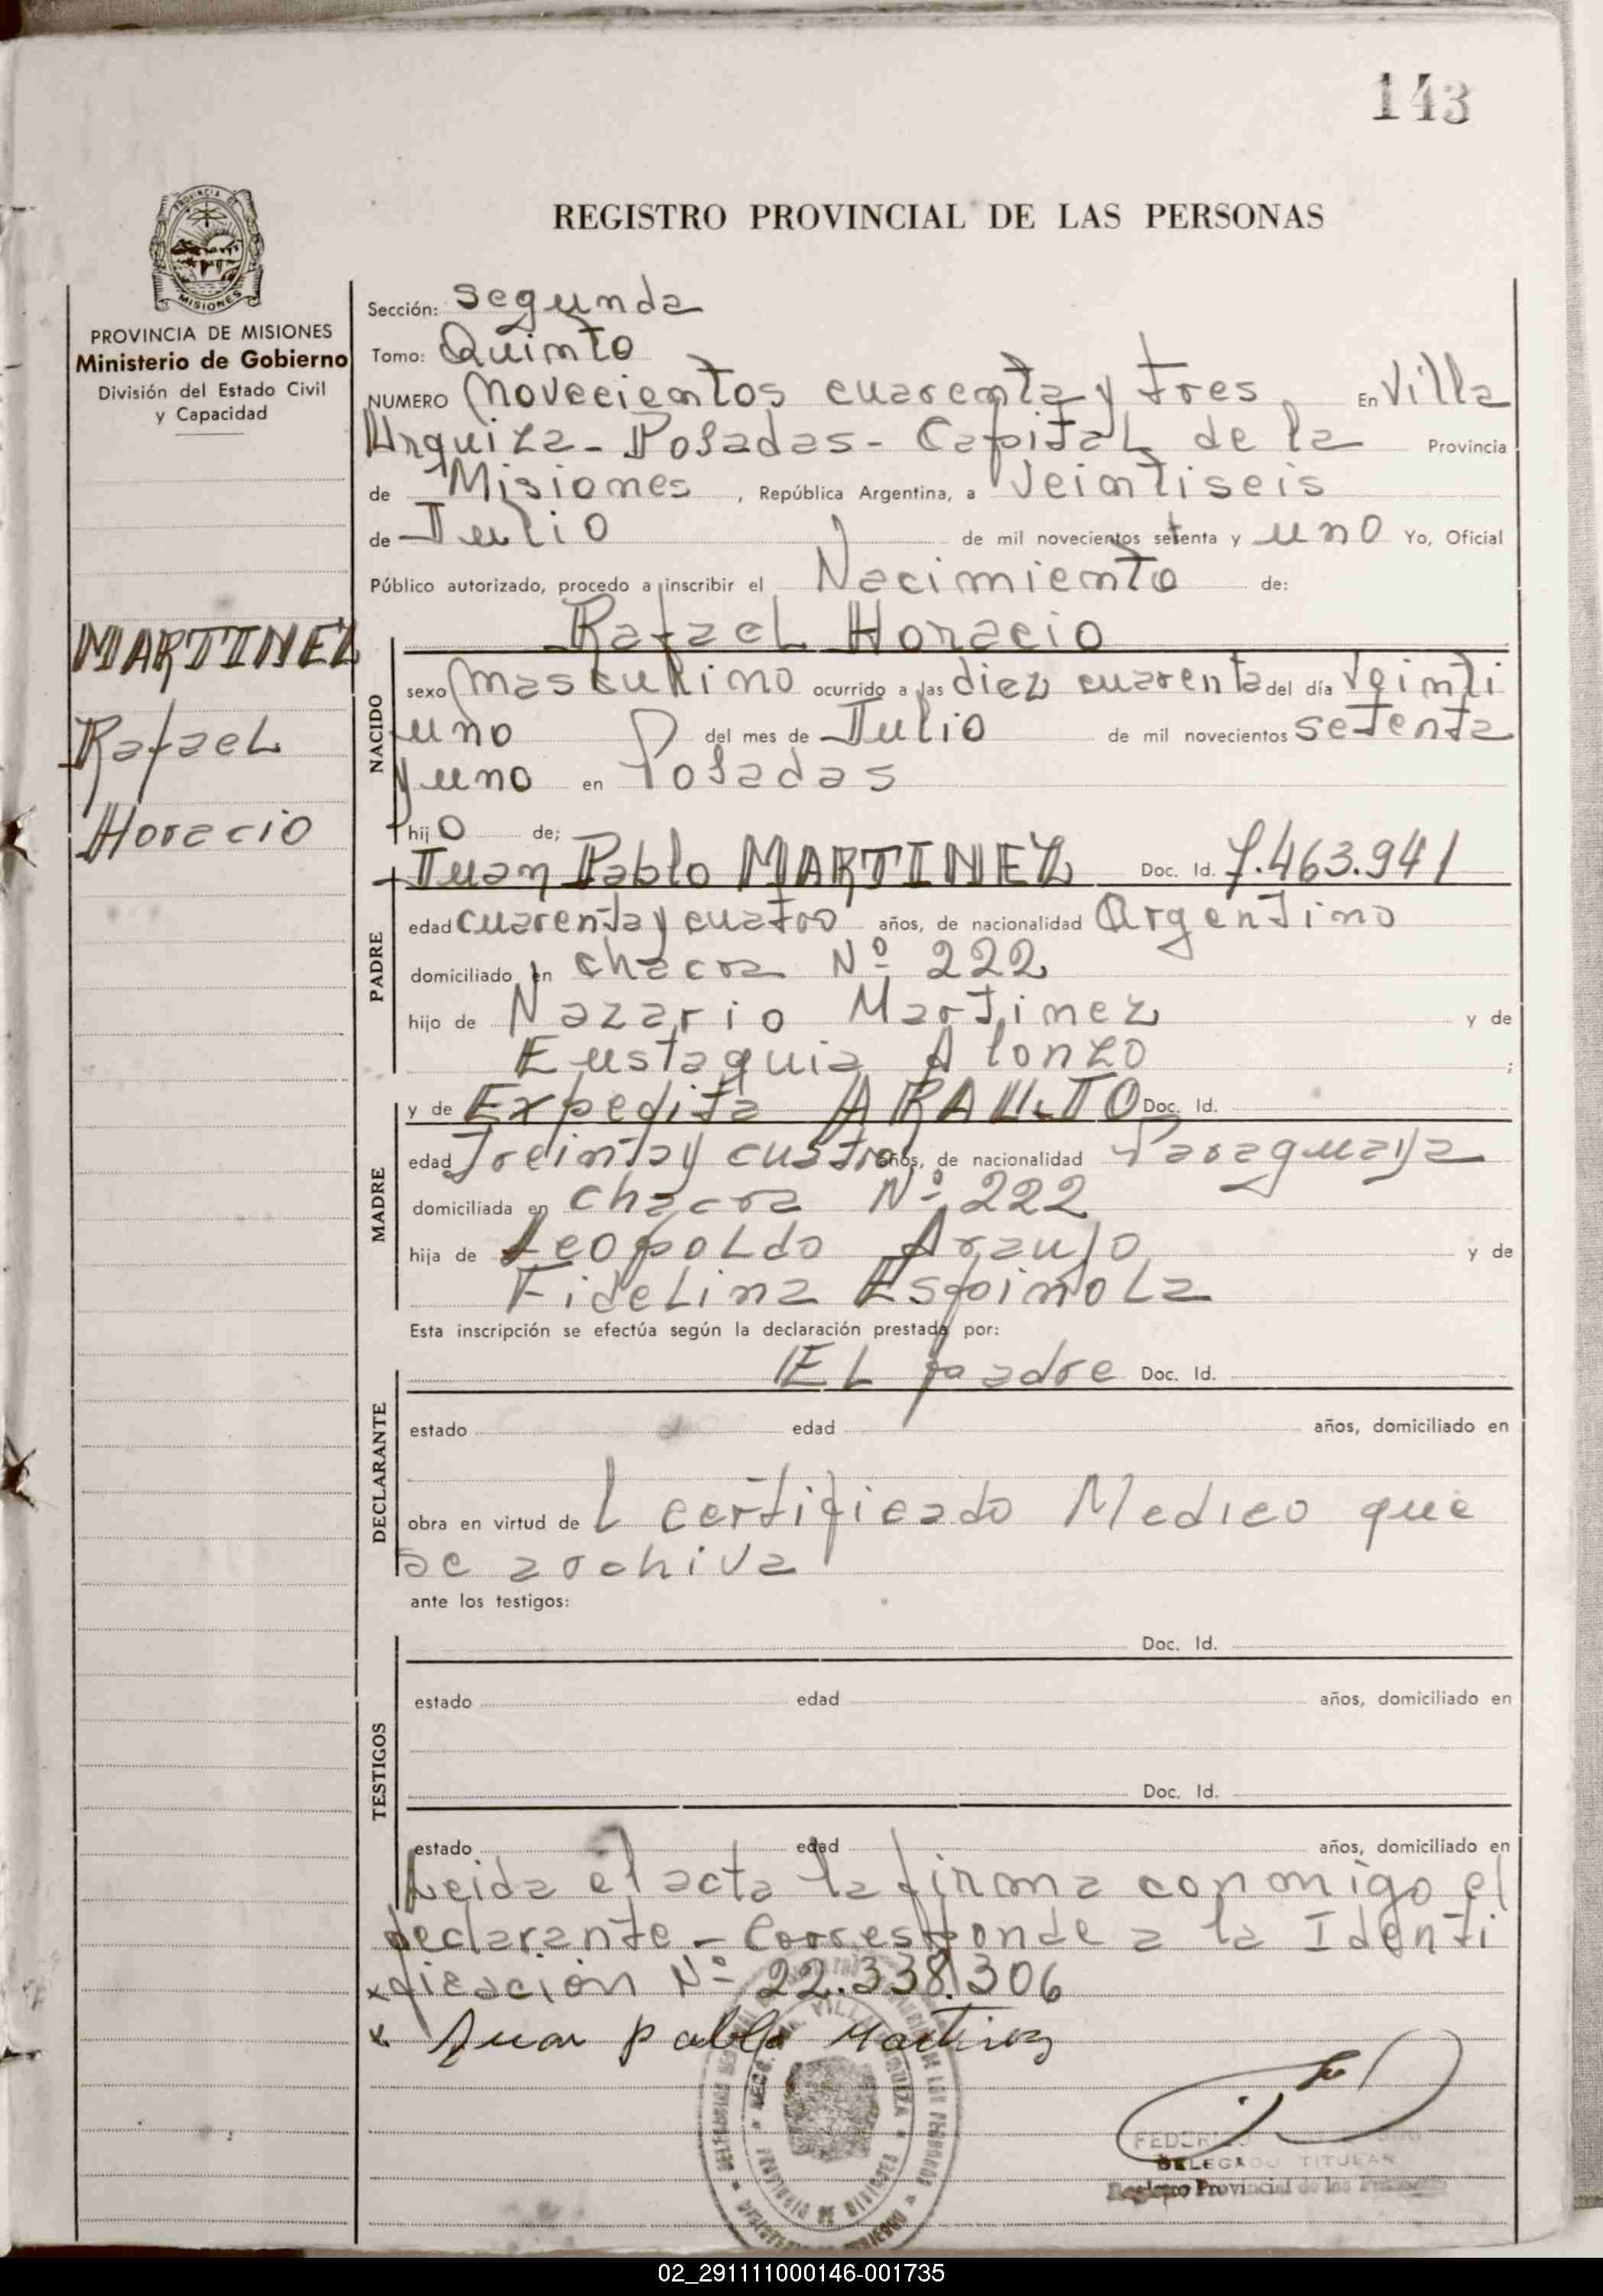 143
REGISTRO PROVINCIAL DE LAS PERSONAS
PROVINCIA DE MISIONES
Ministerio de Gobierno
División del Estado Civil
y Capacidad
MARTINEZ
Rafael
Horacio
Sección: Segunda
Tomo: Quinto
NUMERO Novecientos cuarenta y tres En Villa
Urquiza - Posadas - Capital de la Provincia
de Misiones, República Argentina, a Veintiseis
de Julio de mil novecientos setenta y uno Yo, Oficial
Público autorizado, procedo a inscribir el Nacimiento de:
Rafael Horacio
NACIDO
sexo masculino ocurrido a las diez cuarenta del día Veinti
uno del mes de Julio de mil novecientos setenta
y uno en Posadas
hijo de;
Juan Pablo MARTINEZ Doc. Id. 7.463.941
PADRE
edad cuarenta y cuatro años, de nacionalidad Argentino
domiciliado en chacra Nº 222
hijo de Nazario Martinez y de
Eustaquia Alonzo ;
y de Expedita ARAUJO Doc. Id.
MADRE
edad treinta y cuatro años, de nacionalidad Paraguaya
domiciliada en chacra Nº 222
hija de Leopoldo Araujo y de
Fidelina Espinola
Esta inscripción se efectúa según la declaración prestada por:
El padre Doc. Id.
DECLARANTE
estado edad años, domiciliado en
obra en virtud de l certificado Medico que
se archiva
ante los testigos:
Doc. Id.
TESTIGOS
estado edad años, domiciliado en
Doc. Id.
estado edad años, domiciliado en
Leida el acta la firma conmigo el
declarante - Corresponde a la Identi
ficación Nº 22.338.306
Juan pablo Martinez
DELEGADO TITULAR
Registro Provincial de las Personas
PROVINCIA DE MISIONES
02_291111000146-001735